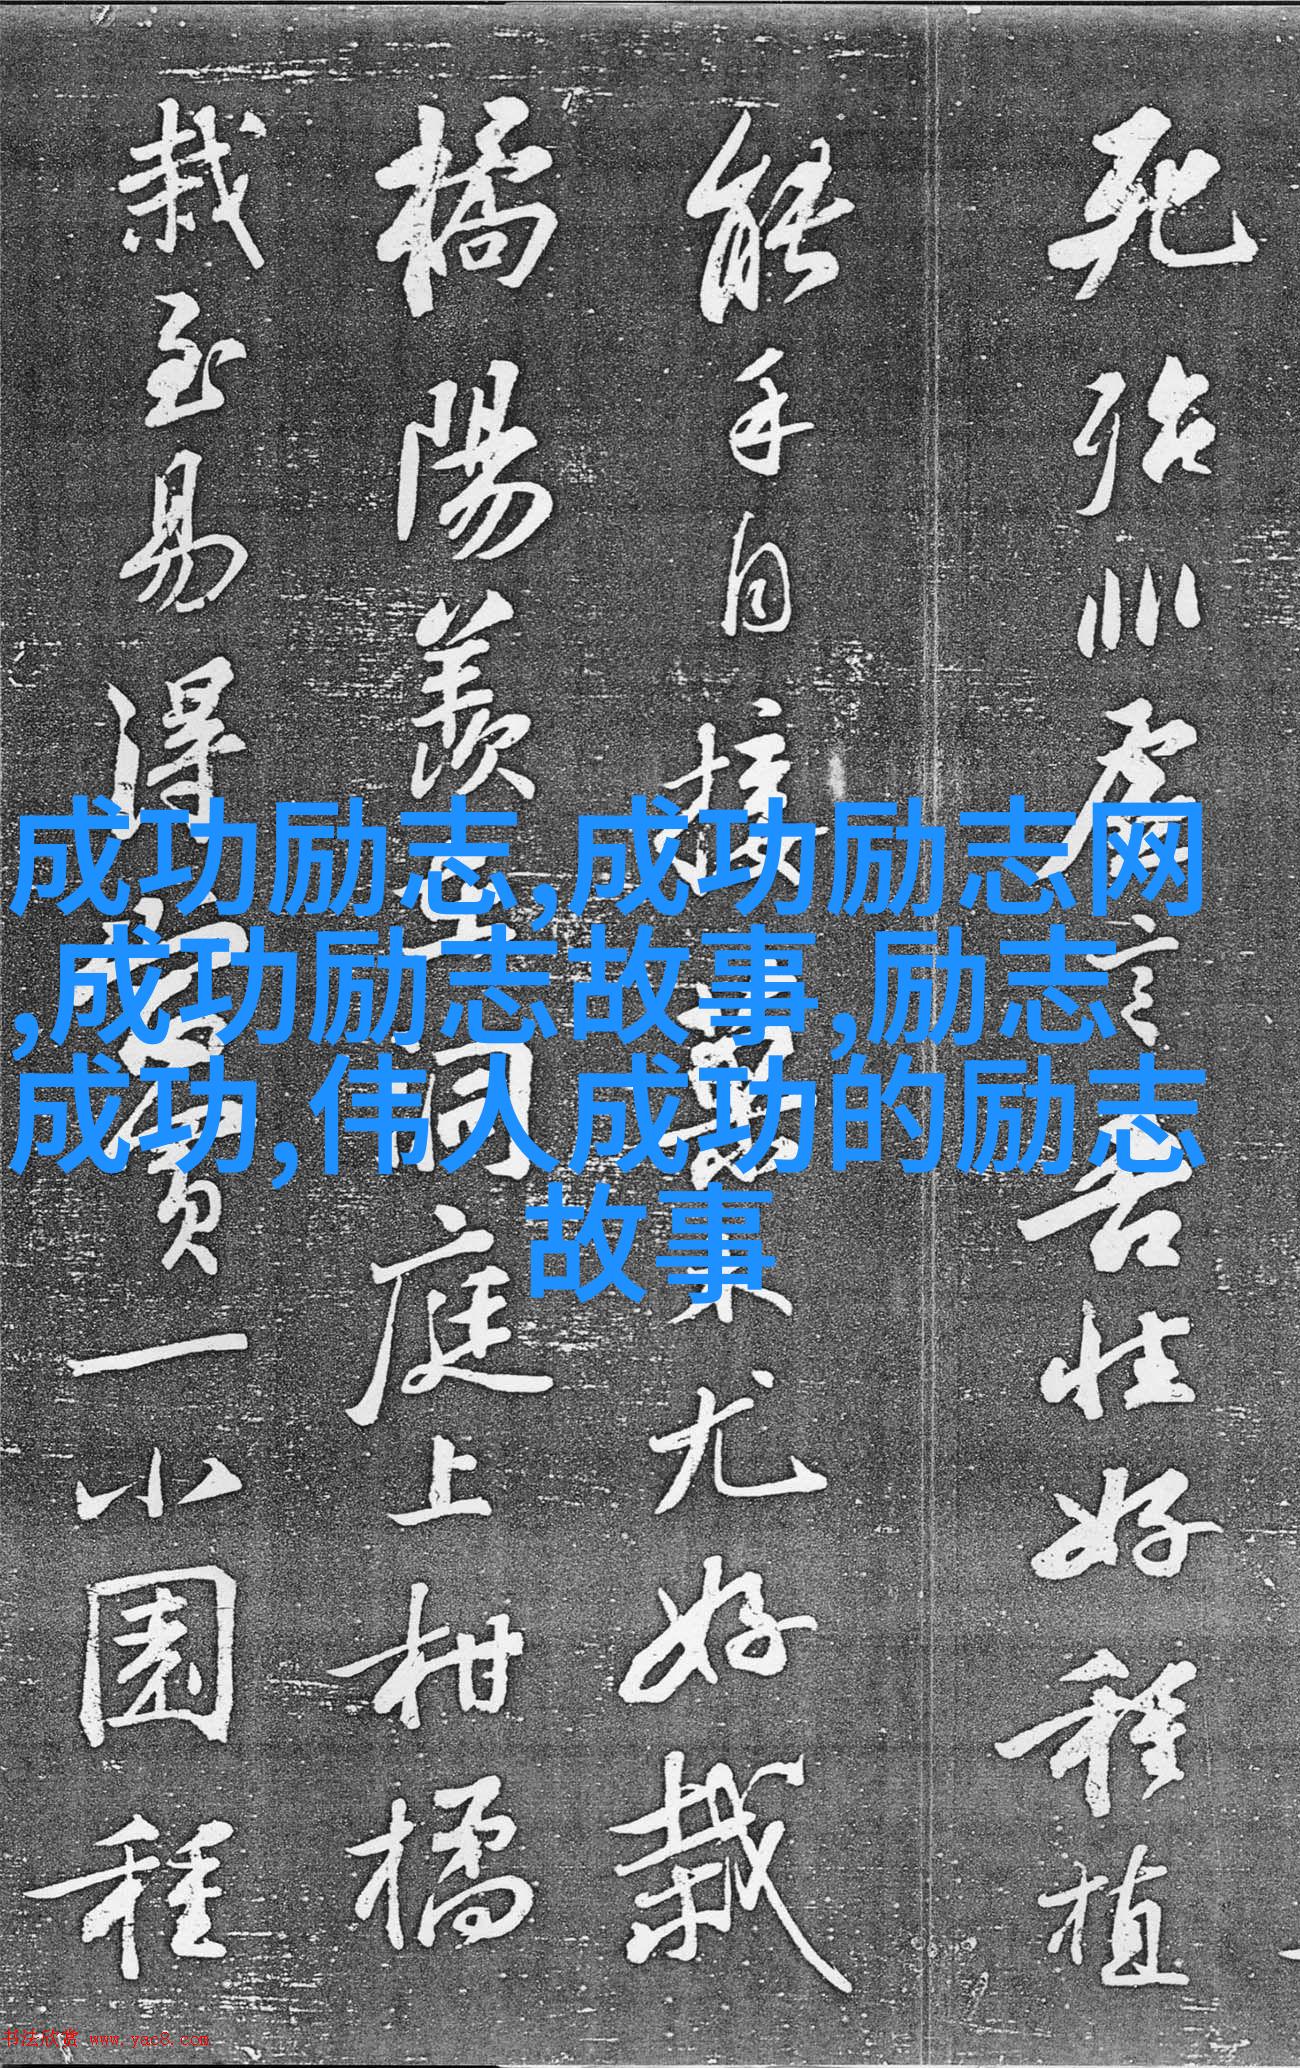 死殆非虚言吾性好種植
能手自接菓木尤好栽
橘陽羨在洞庭上柑橘
栽至易得當買一小園種
成功励志,成功励志网
,成功励志故事,励志
成功,伟人成功的励志
故事
书法欣赏 www.yac8.com